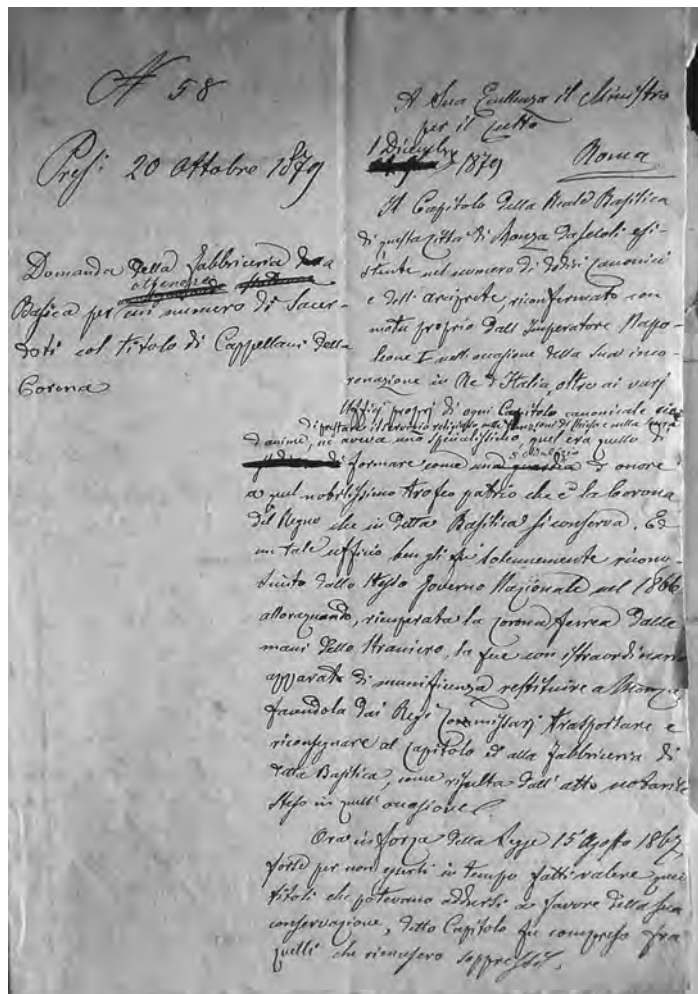 N 58
Pres: 20 Ottobre 1879
Domanda della Fabbriceria della
Basica per un numero di Sacer-
doti col titolo di Cappellani della
Corona
A Sua Eccellenza il Ministro
per il Culto
1 Dicembre
1879 Roma
Il Capitolo della Reale Basilica
di questa città di Monza da secoli esi-
stente nel numero di dodici canonici
e dell'arciprete, riconfermato con
motu proprio dall'Imperatore Napo-
leone I nell'occasione della sua inco-
ronazione in Re d'Italia, oltre ai varj
Ufficj proprj di ogni Capitolo canonicale
di prestare il servizio religioso nelle funzioni di Chiesa e nella cura
d'anime, ne aveva uno specialissimo, quel era quello di
formare come una guardia d'onore
a quel nobilissimo trofeo patrio che è la Corona
del Regno che in detta Basilica si conserva. Ed
un tale ufficio ben gli fu solennemente ricono-
sciuto dallo stesso Governo Nazionale nel 1866
allorquando, ricuperata la corona ferrea dalle
mani dello straniero, la fece con istraordinario
apparato di munificenza restituire a Monza,
facendola dai Regi Commissarj trasportare e
riconsegnare al Capitolo ed alla Fabbriceria di
detta Basilica, come risulta dall'atto notarile
steso in quell'occasione.
Ora in forza della Legge 15 Agosto 1867,
forse per non essersi in tempo fatti valere quei
titoli che potevano addursi a favore della sua
conservazione, detto Capitolo fu compreso fra
quelli che rimasero soppressi.